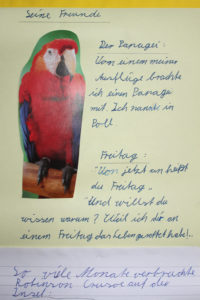 Seine Freunde
Der Papagei:
Von einem meiner
Ausflüge brachte
ich einen Papagei
mit. Ich nannte in
Poll
Freitag:
"Von jetzt an heißt
du Freitag"
"Und willst du
wissen warum? Weil ich dir an
einem Freitag das Leben gerettet habe!"
So viele Monate verbrachte
Robinson Crusoe auf der
Insel: